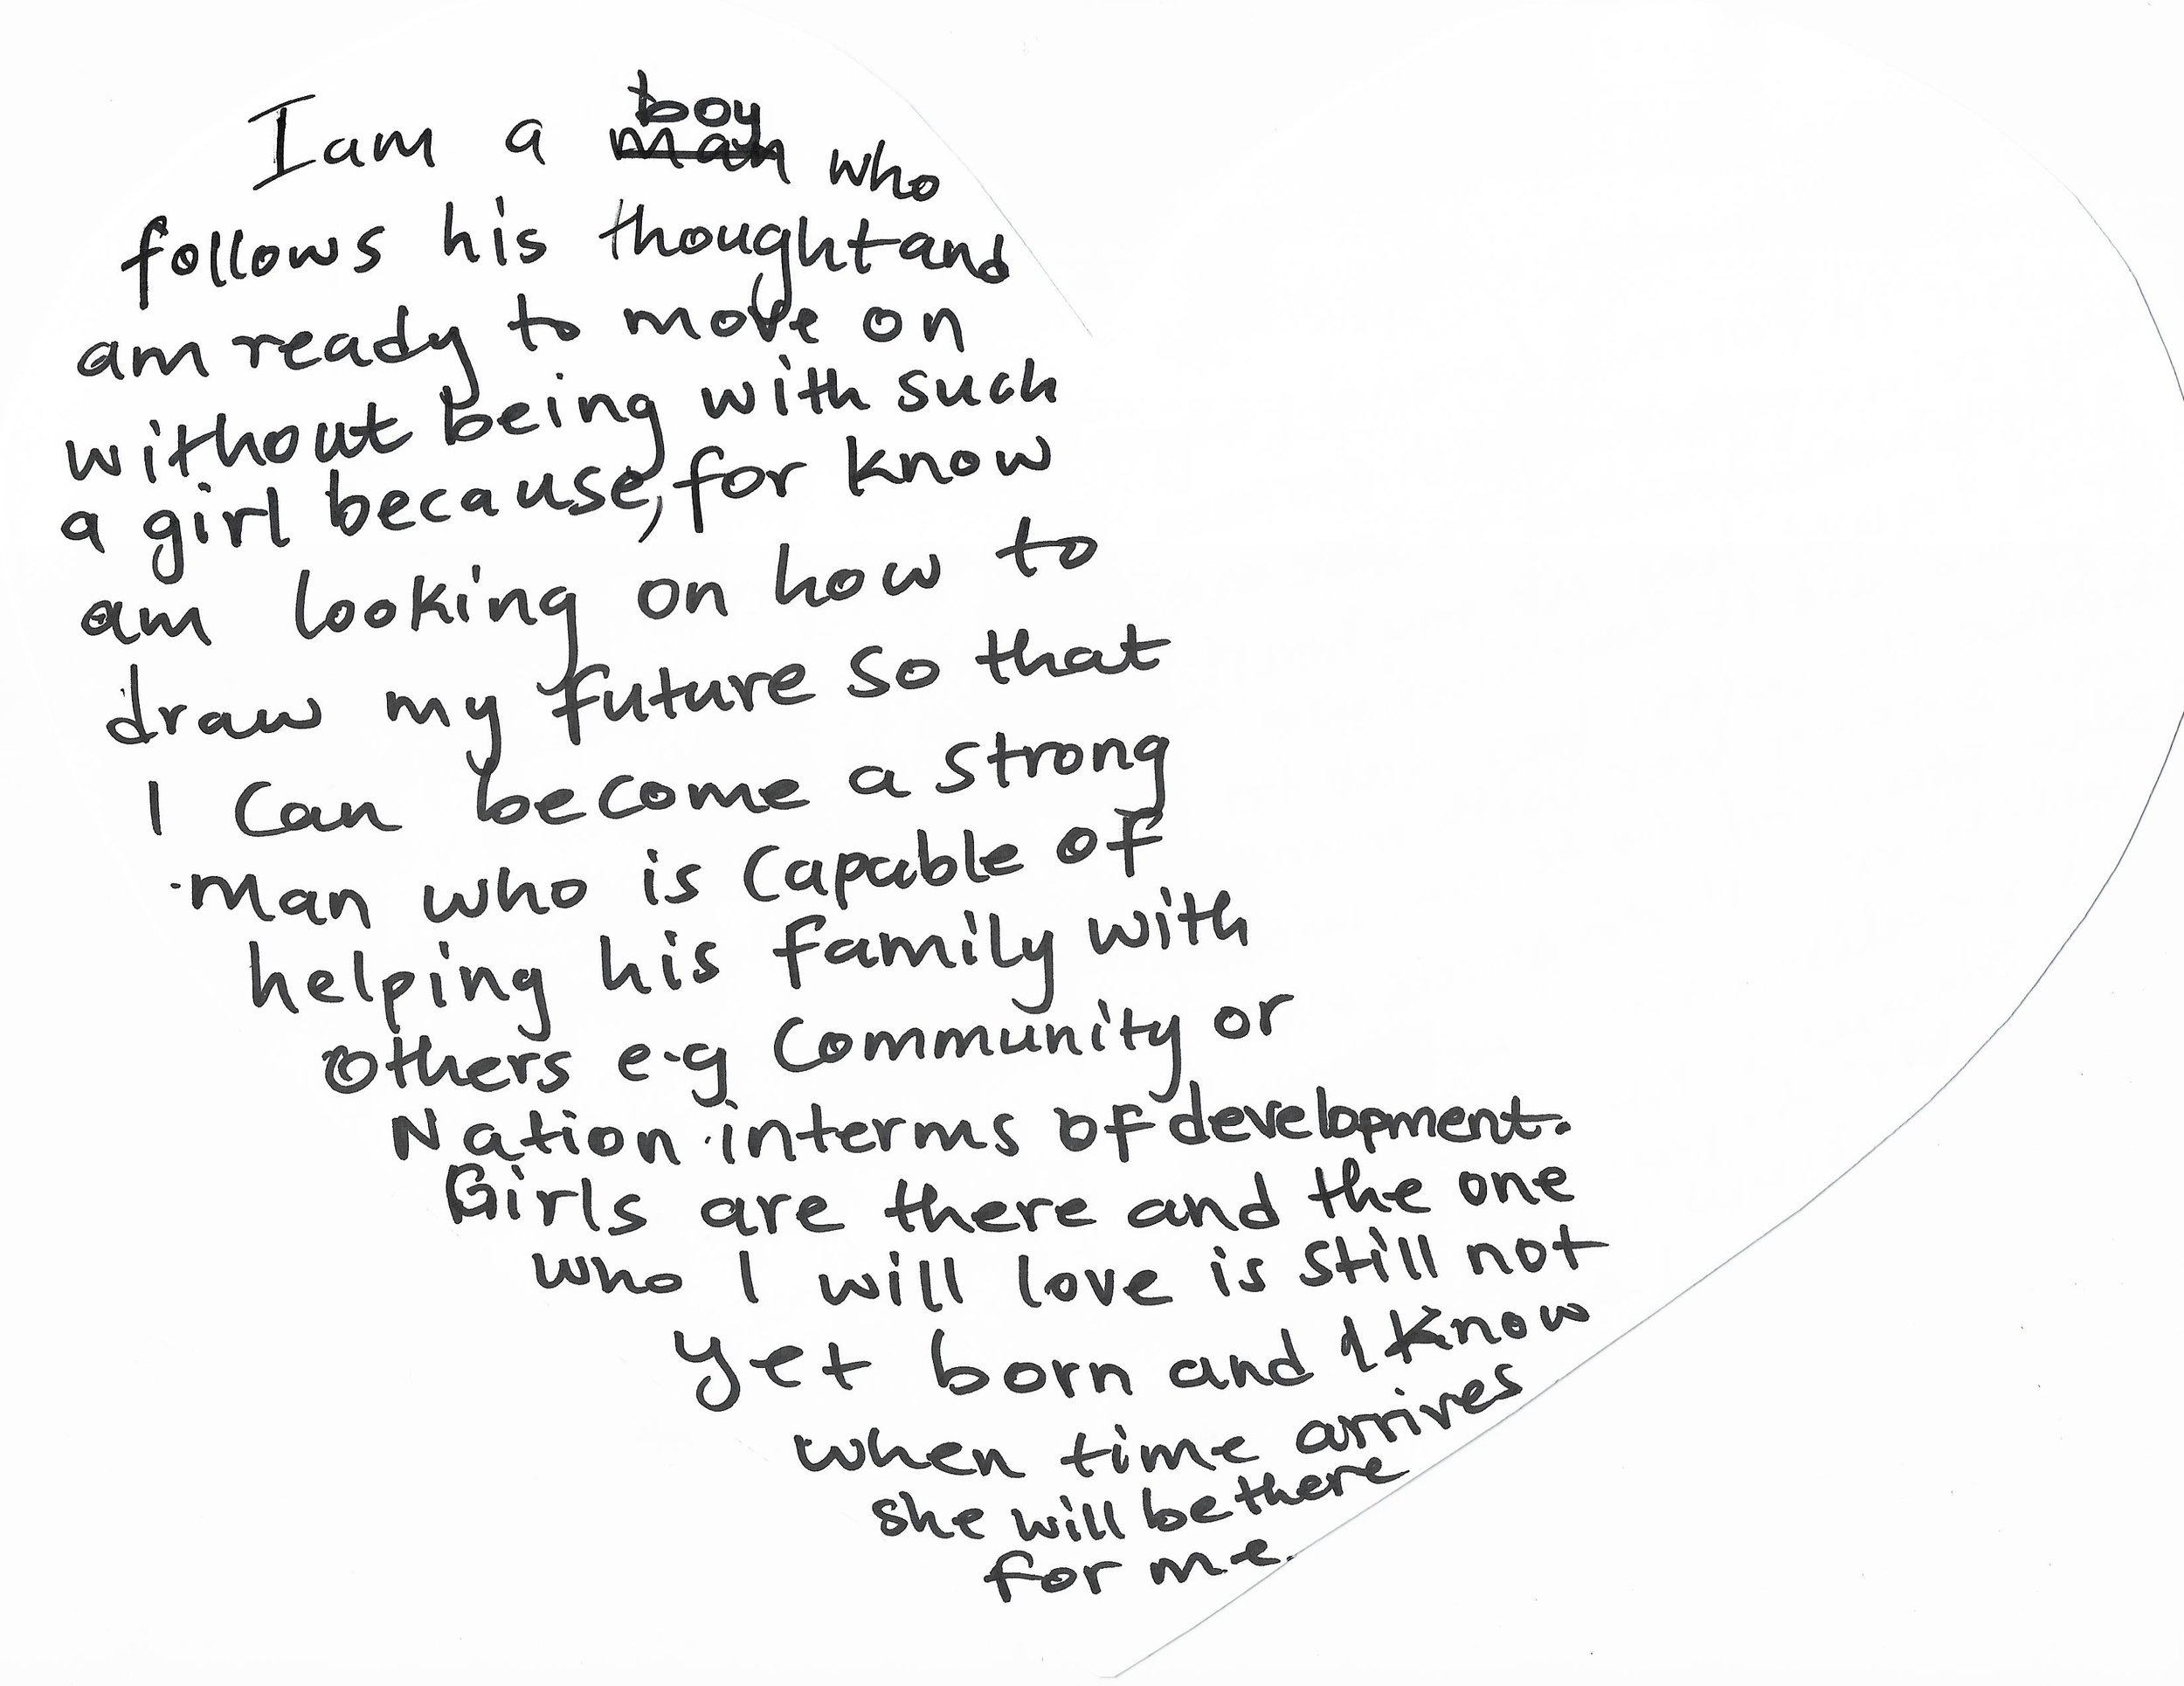 I am a boy man who
follows his thought and
am ready to move on
without being with such
a girl because, for know
am looking on how to
draw my future so that
I can become a strong
man who is capable of
helping his family with
others e.g community or
Nation interms of development.
Girls are there and the one
who I will love is still not
yet born and I know
when time arrives
she will be there
for me.